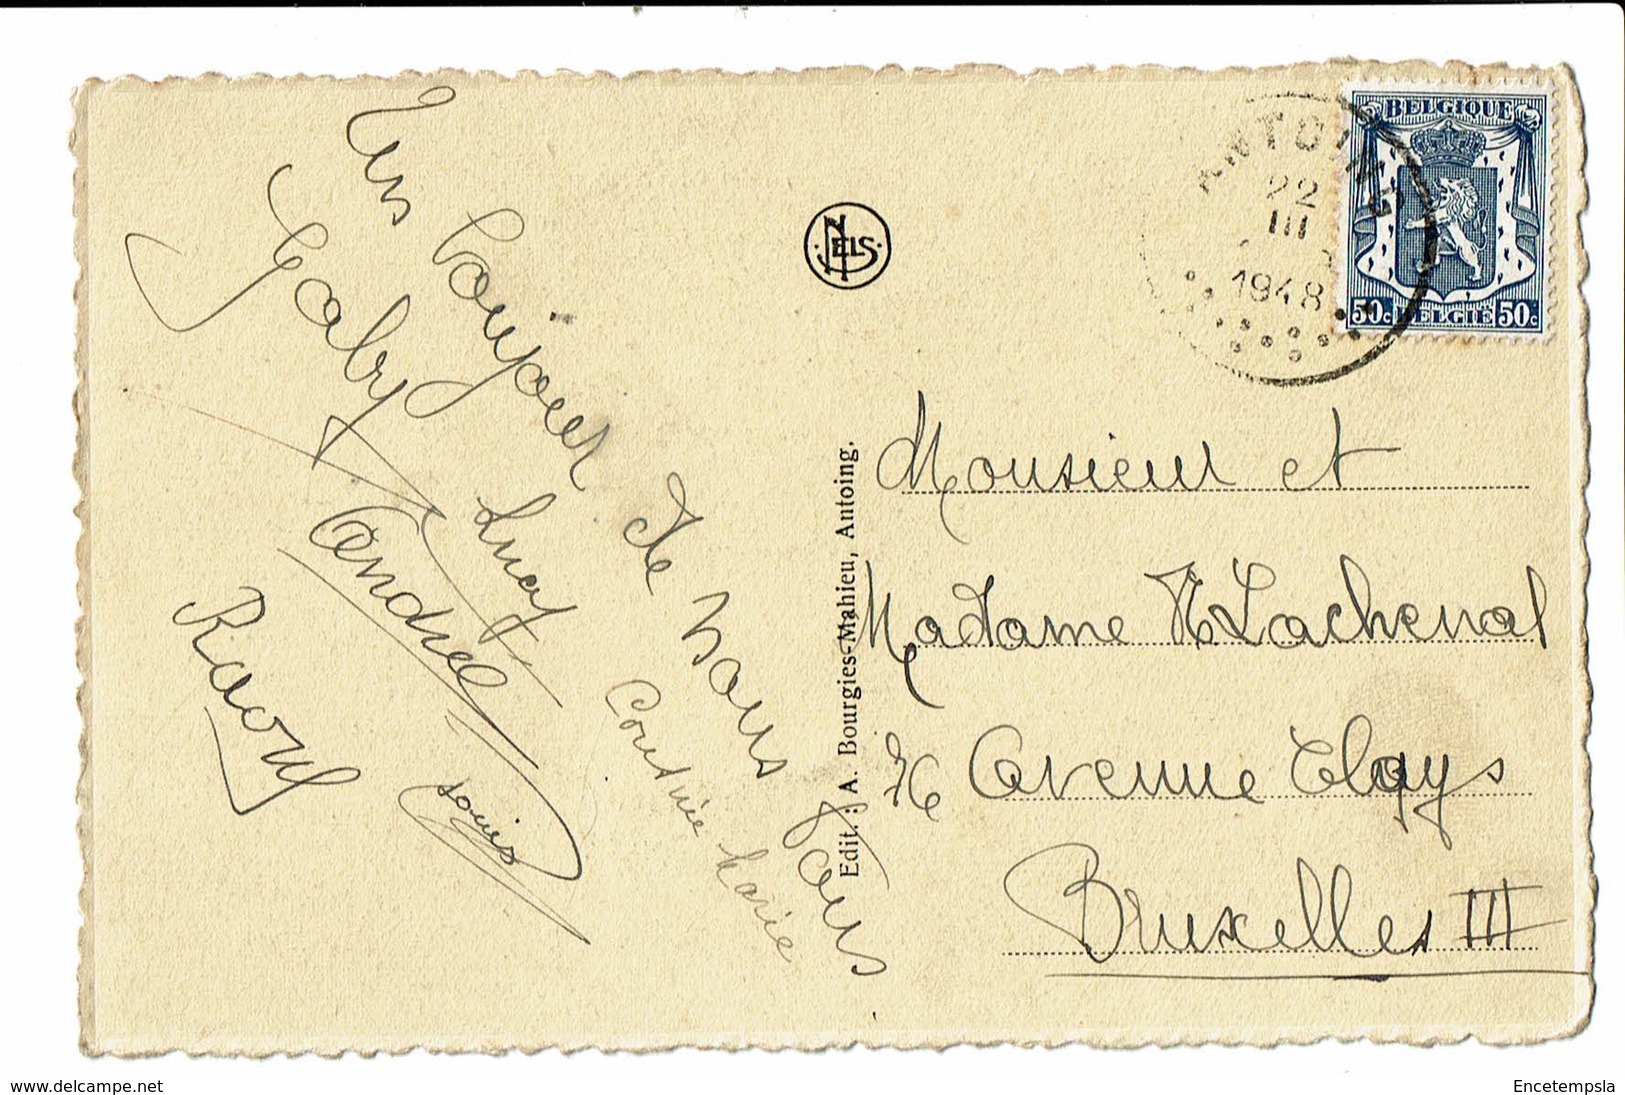 Un bonjour de nous tous
Gaby
Lucy
Andrée
Raoul
Louis
Cousine Marie
NELS
Edit. : A. Bourgies-Mahieu, Antoing.
ANTOING
22
III
1948
BELGIQUE
50c BELGIE 50c
Monsieur et
Madame Lachenal
76 Avenue Clays
Bruxelles III
www.delcampe.net
Encetempsla